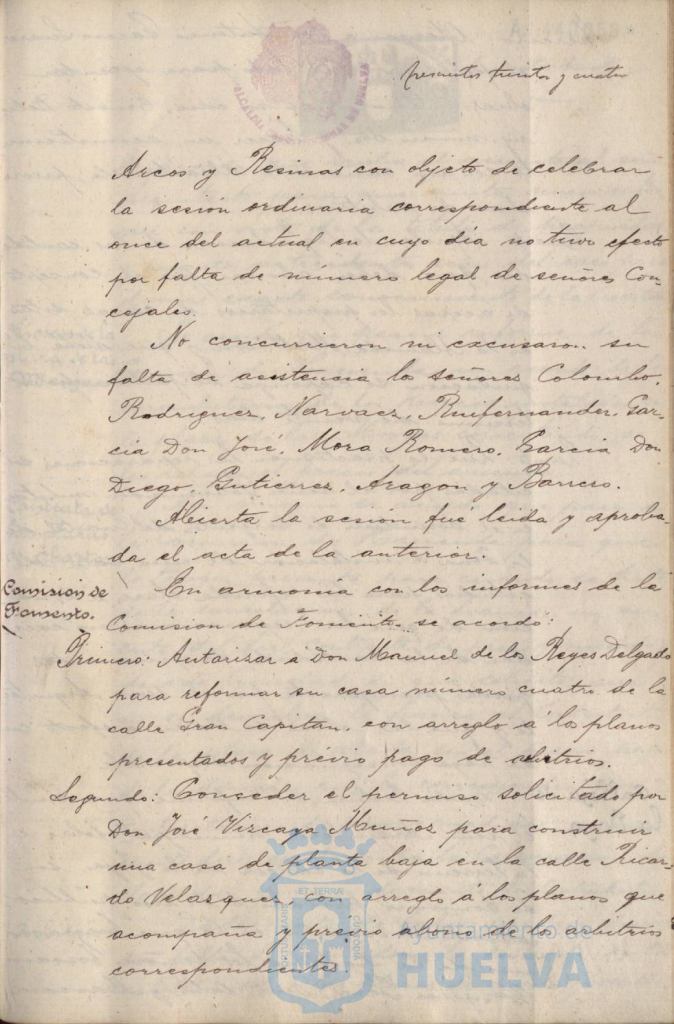 trescientos treinta y cuatro
Arcos y Resinas con objeto de celebrar
la sesión ordinaria correspondiente al
once del actual en cuyo día no tuvo efecto
por falta de número legal de señores Con-
cejales.
No concurrieron ni excusaron su
falta de asistencia los señores Colombo,
Rodriguez, Narvaez, Ruifernandez, Gar-
cía Don José, Mora Romero, Garcia Don
Diego, Gutierrez, Aragon y Barrero.
Abierta la sesión fué leida y aproba-
da el acta de la anterior.
Comision de
Fomento.
En armonía con los informes de la
Comision de Fomento se acordó:
Primero: Autorizar á Don Manuel de los Reyes Delgado
para reformar su casa número cuatro de la
calle Gran Capitan, con arreglo á los planos
presentados y prévio pago de arbitrios.
Segundo: Conseder el permiso solicitado por
Don José Vizcaya Muñoz para construir
una casa de planta baja en la calle Ricar-
do Velazquez, con arreglo á los planos que
acompaña y previo abono de los arbitrios
correspondientes.
Ayuntamiento de
HUELVA